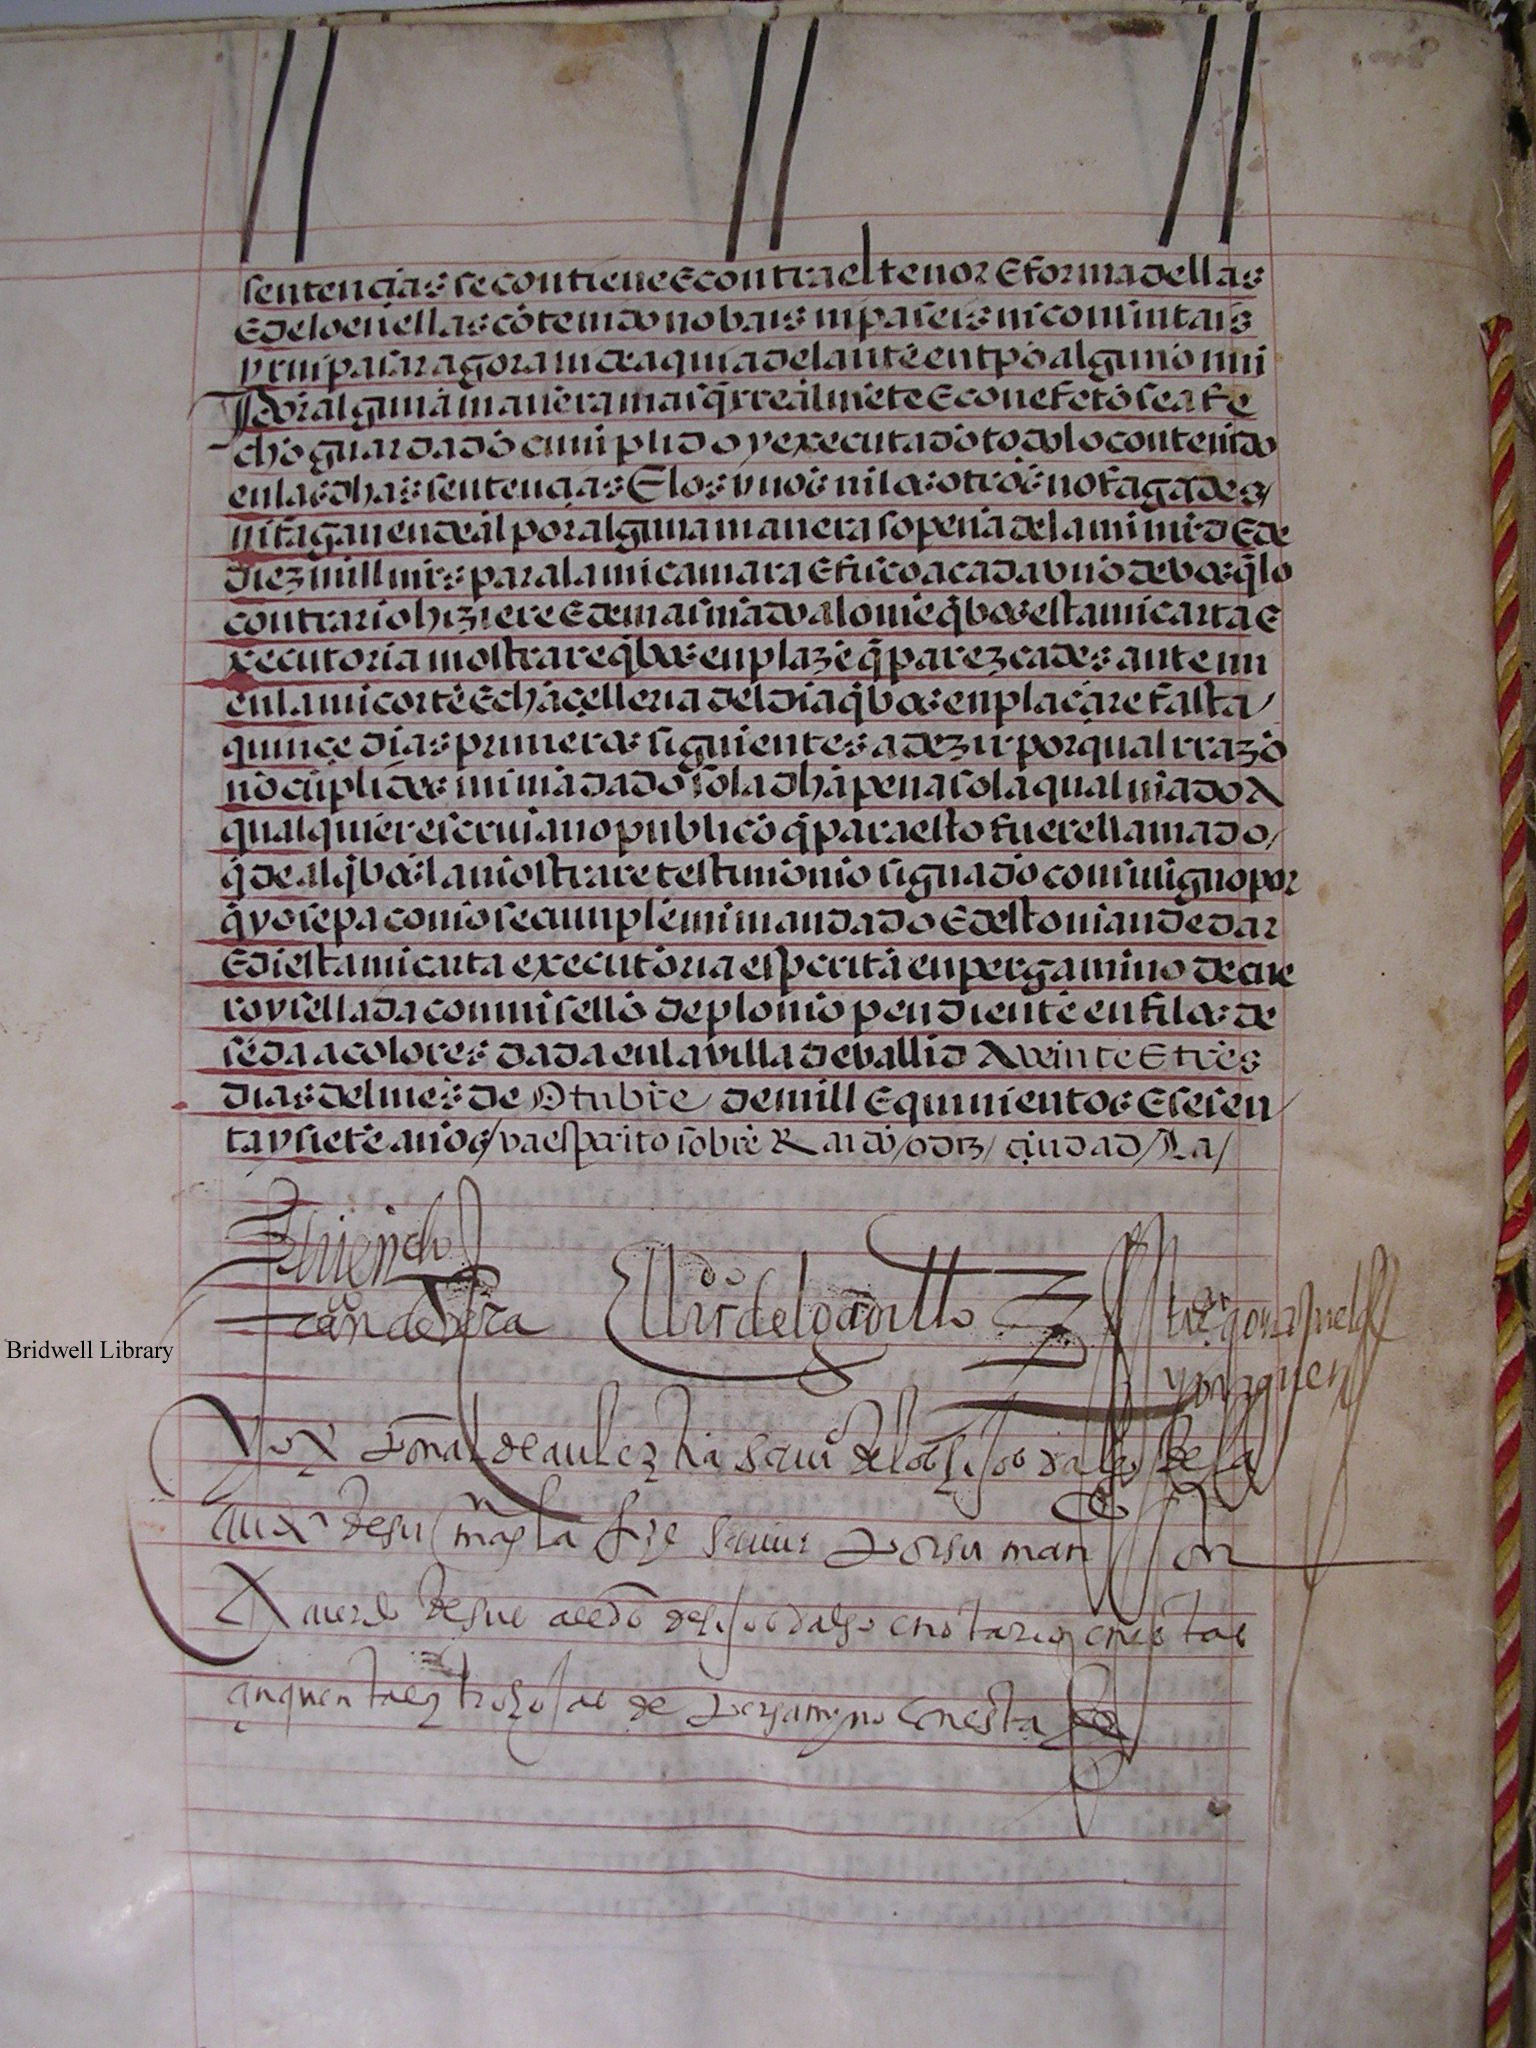 sentencias se contiene E contra el tenor E forma dellas
E de lo en ellas cōtenido no bais ni paseis ni consintais
yr ni pasar agora ni de aqui adelante en tpo alguno ni
Por alguna manera mas q̄ rrealmēte E con efeto sea fe
cho guardado cunplido y executado todo lo contenido
en las dhas sentencias E los vnos ni los otros no fagades
ni fagan ende al por alguna manera so pena de la mi mrd E de
diez mill mrs para la mi camara E fisco a cada vno de bos q̄ lo
contrario hiziere E demas mādo al ome q̄ bos esta mi carta E
xecutoria mostrare q̄ bos enplaze q̄ parezcades ante mi
en la mi corte E chācelleria del dia q̄ bos enplaçare fasta
quinçe dias primeros siguientes a dezir por qual rrazō
no cūplides mi mādado so la dha pena so la qual mādo A
qualquier escriuano publico q̄ para esto fuere llamado
q̄ de al q̄ bos la mostrare testimonio signado con su signo por
q̄ yo sepa como se cunple mi mandado E desto mande dar
E di esta mi carta executoria esperita en pergamino de cue
ro y sellada con mi sello de plomo pendiente en filos de
seda a colores dada en la villa de vallid A veinte E tres
dias del mes de Otubre de mill E quinientos E sesen
ta y siete años / va esperito sobre R an do / o diz / ciudad / La /
El licendo
El lido delgadillo
Yo
su magt la fize screuir Por su man
Acuerdo de sus alcdes de hijosdalgo e notario en estas
cinquenta e quatro hojas de Pergamyno con esta
Bridwell Library